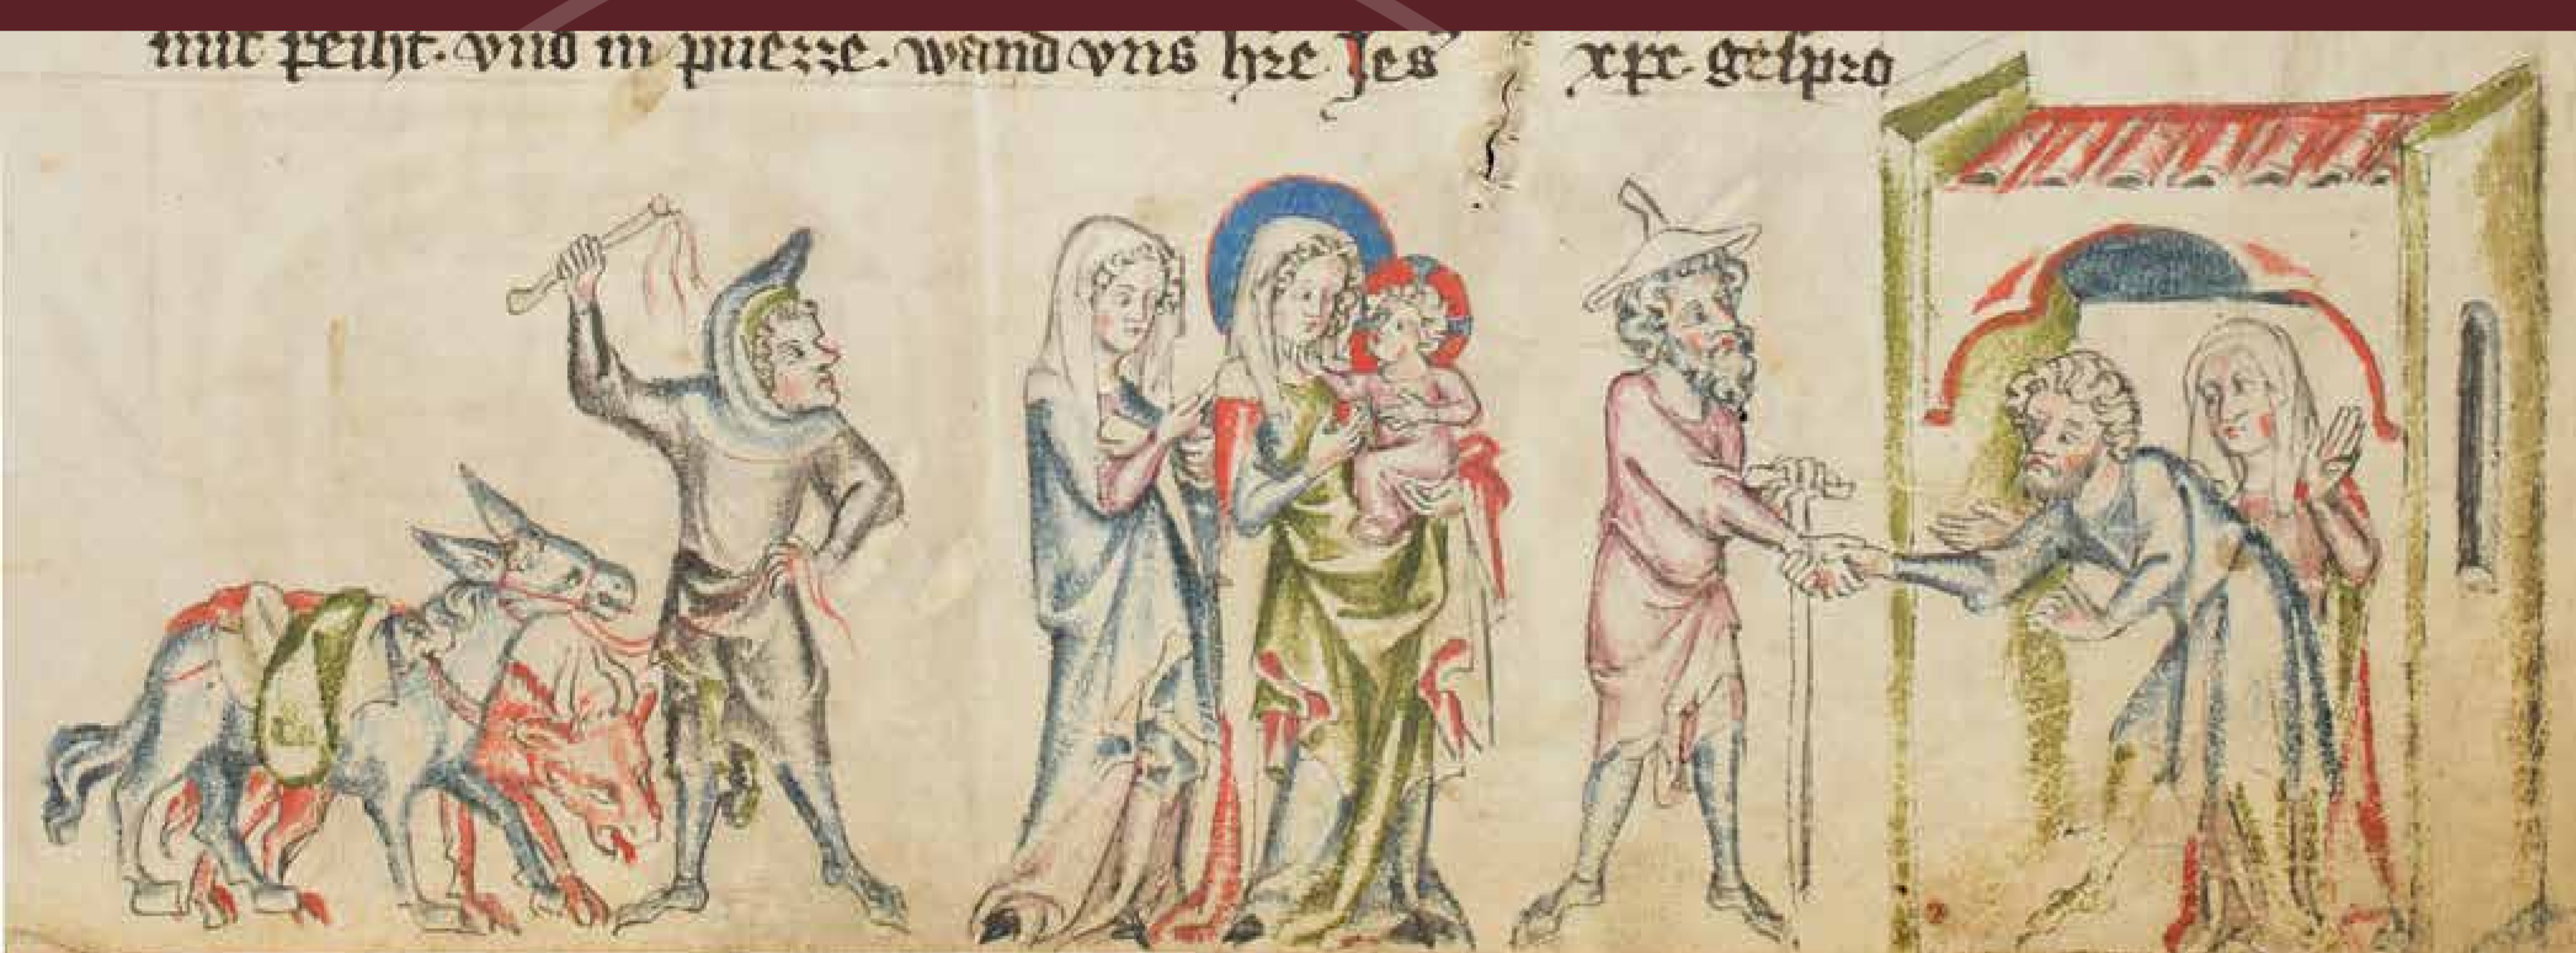 mit peiht. vnd in puezze. wand vns hre Jes xpc gespro